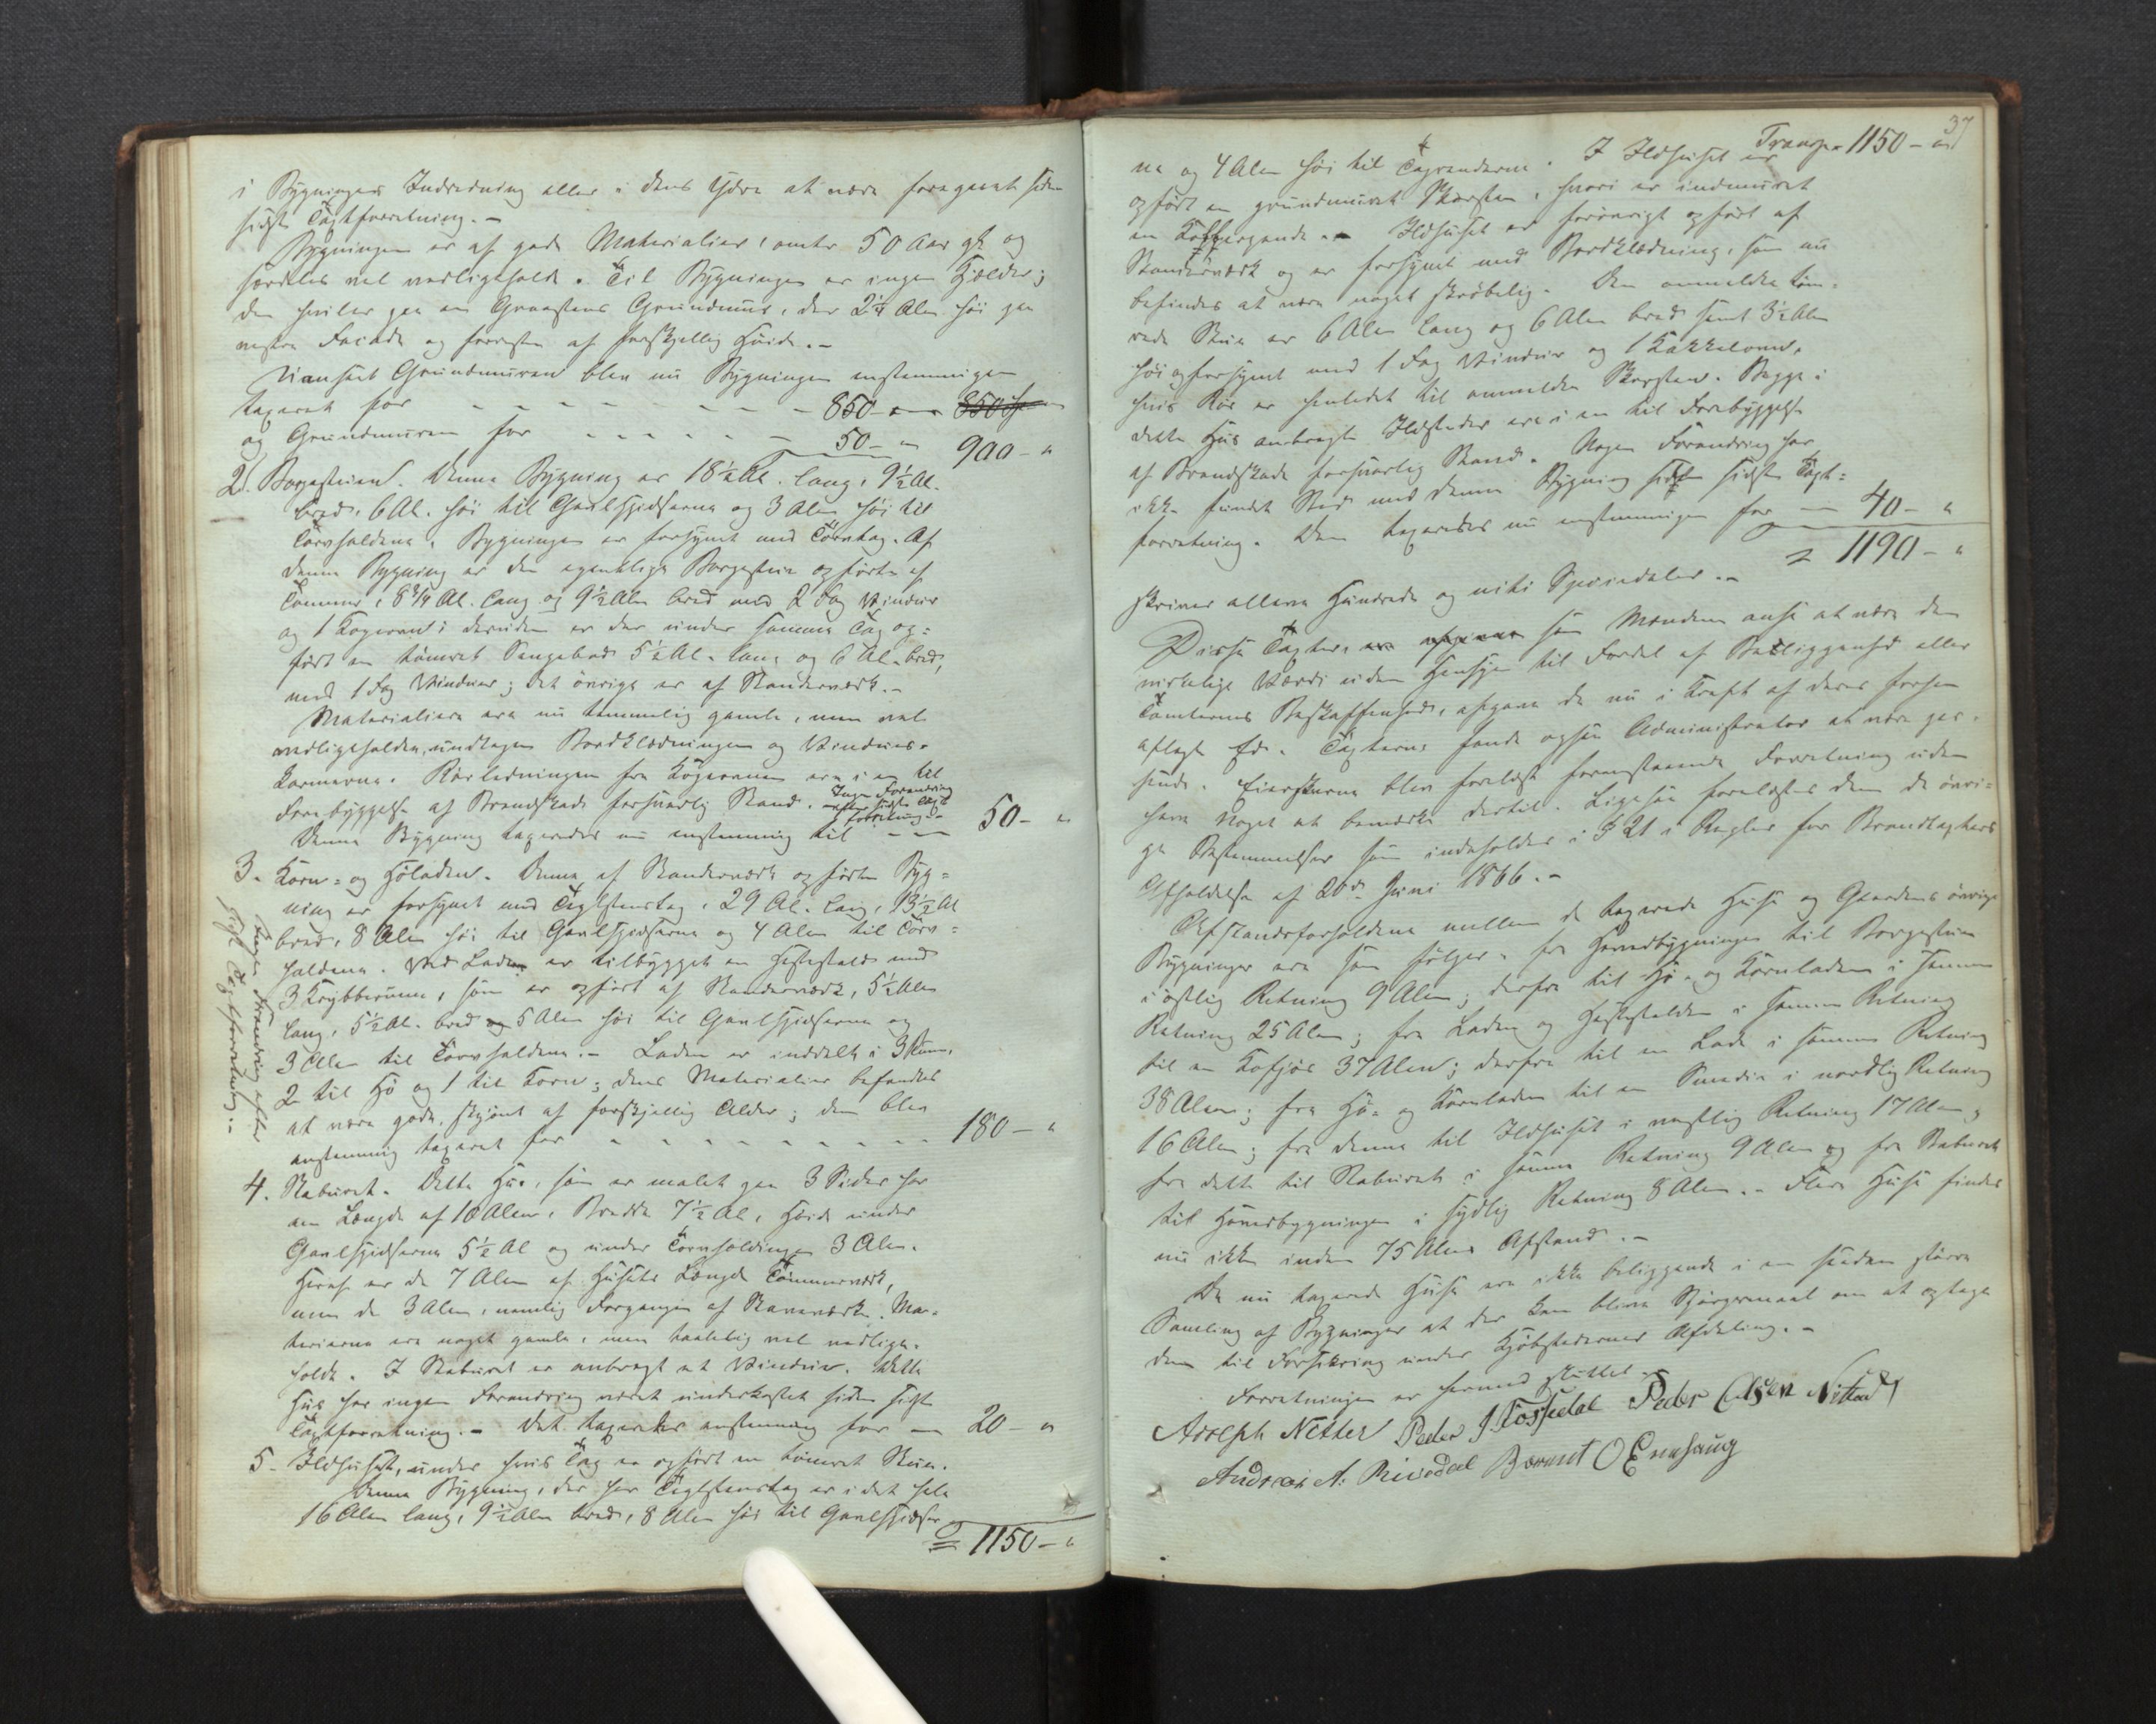 i Bygningens Indredning eller i dens Ydre at være foregaaet siden
sidste Taxtforretning.-
Bygningen er af gode Materialier, omtr 50 Aar gl. og
særdeles vel vedligeholdt. Til Bygningen er ingen Kjelder;
den hviler paa en Graastens Grundmuur, der 2¼ Alen høi paa
vestre Facade og forresten af forskjellig Høide.-
Uanseet Grundmuren blev nu Bygningen enstemmigen
taxeret for - - - - - - - 850 - " 850 Sp
og Grundmuren for - - - - - - 50 - " 900 - "
2. Borgestuen. Denne Bygning er 18½ Al. lang, 9½ Al.
bred, 6 Al. høi til Gavlspidserne og 3 Alen høi til
Torvholdene. Bygningen er forsynet med Torvtag. Af
denne Bygning er den egentlige Borgestue opført af
Tømmer, 8¾ Al. lang og 9½ Alen bred med 2 Fag Vinduer
og 1 Kogeovn; desuden er der under samme Tag op=
ført en tømret Sengebod 5½ Al. lang og 6 Al. bred,
med 1 Fag Vinduer; det øvrige er af Standerværk.-
Materialierne ere nu temmelig gamle, men vel
vedligeholdte, undtagen Bordklædningen og Vindues-
karmerne. Rørledningen fra Kogeovnen ere i en til
Forebyggelse af Brandskade forsvarlig Stand. Ingen Forandring
efter sidste Taxt
forretning.-
Denne Bygning taxeredes nu enstemmig til - - 50 - "
3. Korn- og Høladen. Denne af Standerværk opførte Byg=
ning er forsynet med Teglstenstag, 29 Al. lang, 13½ Al
bred, 8 Alen høi til Gavlspidserne og 4 Alen til Torv=
holdene. Ved Laden er tilbygget en Hestestald med
3 Krybberum, som er opført af Standerværk, 5½ Alen
lang, 5½ Al. bred og 5 Alen høi til Gavlspidserne og
3 Alen til Torvholdene.- Laden er inddelt i 3 Rum,
2 til Hø og 1 til Korn; dens Materialier befandtes
at være gode, skjønt af forskjellig Alder; den blev
enstemmig taxeret for - - - - - - - - - 180 - "
Ingen Forandring efter
sidste Taxtforretning.-
4. Staburet. Dette Hus, som er malet paa 3 Sider har
en Længde af 10 Alen, Bredde 7½ Al, Høide under
Gavlspidserne 5½ Al og under Torvholdingen 3 Alen.
Heraf er de 7 Alen af Husets Længde Tømmerværk,
men de 3 Alen, nemlig Forgangen af Staveværk. Ma-
terierne ere noget gamle, men taalelig vel vedlige-
holdt. I Staburet er anbragt et Vindue. Dette
Hus har ingen Forandring været underkastet siden sidste
Taxtforretning.- Det taxeredes enstemmig for - 20 - "
5. Ildhuset, under hvis Tag er opført en tømret Stue.
Denne Bygning, der har Teglstenstag er i det hele
16 Alen lang, 9½ Alen bred, 8 Alen høi til Gavlspidser-
= 1150 - "
37
Transp. 1150 - "
ne og 4 Alen høi til Tagrenderne. I Ildhuset er
opført en grundmuret Skorsten, hvori er indmuret
en Kobberpande.- Ildhuset er forøvrigt opført af
Standerværk og er forsynet med Bordklædning, som nu
befindes at være noget skrøbelig. Den anmeldte tøm-
rede Stue er 6 Alen lang og 6 Alen bred samt 3½ Alen
høi og forsynet med 1 Fag Vinduer og 1 Kakkelovn,
hvis Rør er henledet til anmeldte Skorsten. Begge i
dette Hus anbragte Ildsteder ere i en til Forebyggelse
af Brandskade forsvarlig Stand. Nogen Forandring har
ikke fundet Sted med denne Bygning siden sidste Taxt=
forretning. Den taxeredes nu enstemmigen for - 40 - "
= 1190 - "
skriver elleve Hundrede og niti Speciedaler.-
Disse Taxter, som Mændene anse at være den
virkelige Værdi uden Hensyn til Fordel af Beliggenhed eller
Tomternes Beskaffenhed, afgave de nu i Kraft af deres forhen
aflagte Ed. Taxterne fandt ogsaa Administrator at være pas-
sende. Eierskerne blev forelæst foranstaaende Forretning uden
have Noget at bemærke dertil. Ligesaa forelæstes dem de øvri=
ge Bestemmelser som indeholdes i § 21 i Regler for Brandtaxters
Afholdelse af 20de Juni 1866.-
Afstandsforholdene mellem de taxerede Huse og Gaardens øvrige
Bygninger ere som følger: fra Hovedbygningen til Borgestuen
i østlig Retning 9 Alen; derfra til Hø- og Kornladen i samme
Retning 25 Alen; fra Laden og Hestestalden i samme Retning
til en Kofjøs 37 Alen; derfra til en Lade i samme Retning
38 Alen; fra Hø- og Kornladen til en Smedie i nordlig Retning
16 Alen; fra denne til Ildhuset i vestlig Retning 17 Alen;
fra dette til Staburet i samme Retning 9 Alen og fra Staburet
til Hovedbygningen i sydlig Retning 8 Alen.- Flere Huse findes
nu ikke inden 75 Alens Afstand.-
De nu taxerede Huse ere ikke beliggende i en saadan større
Samling af Bygninger at der kan blive Spørgsmaal om at optage
dem til Forsikring under Kjøbstædernes Afdeling.-
Forretningen er hermed sluttet.-
Adolph Nitter Peder J Tosfedal Peder Olsen Nistad
Andreas A. Birvedal Berent O Ernshaug